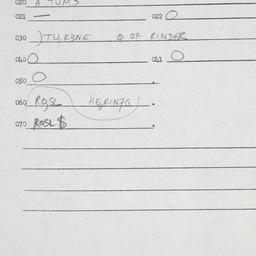 020 A TUMS
021 — 022 O
030 )TU,K3NE O OF RINDER
040 O 041 O
050 O
060 RO,SL HE,RIN7G/
070 ROSL $